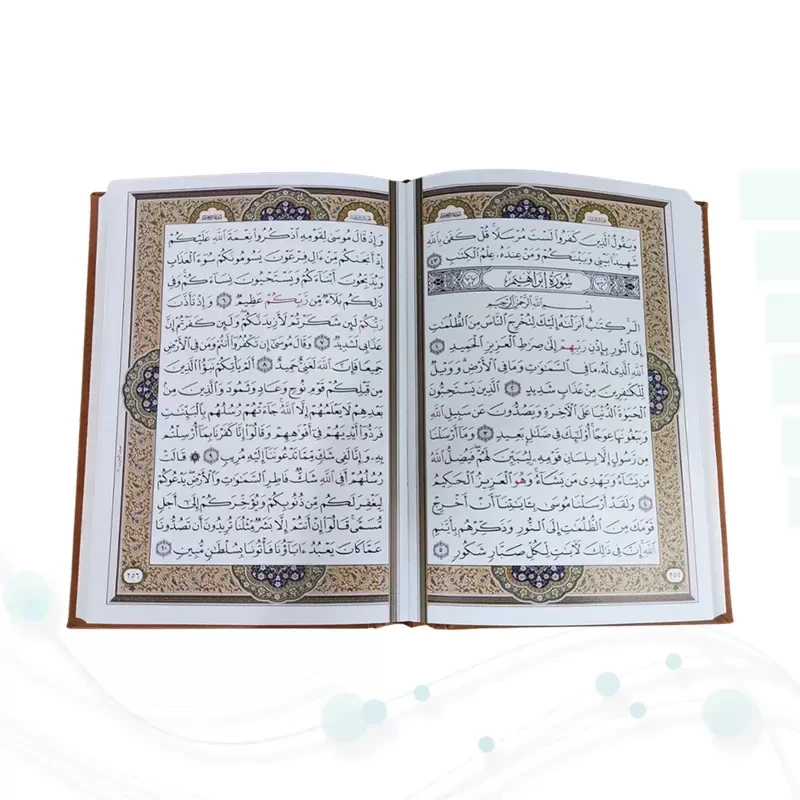 وَيَقُولُ الَّذِينَ كَفَرُوا لَسْتَ مُرْسَلًا قُلْ كَفَىٰ بِاللَّهِ
شَهِيدًا بَيْنِي وَبَيْنَكُمْ وَمَنْ عِندَهُ عِلْمُ الْكِتَابِ ٤٣
سُورَةُ إِبْرَاهِيمَ
بِسْمِ اللَّهِ الرَّحْمَٰنِ الرَّحِيمِ
الر كِتَابٌ أَنزَلْنَاهُ إِلَيْكَ لِتُخْرِجَ النَّاسَ مِنَ الظُّلُمَاتِ
إِلَى النُّورِ بِإِذْنِ رَبِّهِمْ إِلَىٰ صِرَاطِ الْعَزِيزِ الْحَمِيدِ ١
اللَّهِ الَّذِي لَهُ مَا فِي السَّمَاوَاتِ وَمَا فِي الْأَرْضِ وَوَيْلٌ
لِّلْكَافِرِينَ مِنْ عَذَابٍ شَدِيدٍ ٢ الَّذِينَ يَسْتَحِبُّونَ
الْحَيَاةَ الدُّنْيَا عَلَى الْآخِرَةِ وَيَصُدُّونَ عَن سَبِيلِ اللَّهِ
وَيَبْغُونَهَا عِوَجًا أُولَٰئِكَ فِي ضَلَالٍ بَعِيدٍ ٣ وَمَا أَرْسَلْنَا
مِن رَّسُولٍ إِلَّا بِلِسَانِ قَوْمِهِ لِيُبَيِّنَ لَهُمْ فَيُضِلُّ اللَّهُ
مَن يَشَاءُ وَيَهْدِي مَن يَشَاءُ وَهُوَ الْعَزِيزُ الْحَكِيمُ
٤ وَلَقَدْ أَرْسَلْنَا مُوسَىٰ بِآيَاتِنَا أَنْ أَخْرِجْ
قَوْمَكَ مِنَ الظُّلُمَاتِ إِلَى النُّورِ وَذَكِّرْهُم بِأَيَّامِ
اللَّهِ إِنَّ فِي ذَٰلِكَ لَآيَاتٍ لِّكُلِّ صَبَّارٍ شَكُورٍ ٥
٢٥٥
وَإِذْ قَالَ مُوسَىٰ لِقَوْمِهِ اذْكُرُوا نِعْمَةَ اللَّهِ عَلَيْكُمْ
إِذْ أَنجَاكُم مِّنْ آلِ فِرْعَوْنَ يَسُومُونَكُمْ سُوءَ الْعَذَابِ
وَيُذَبِّحُونَ أَبْنَاءَكُمْ وَيَسْتَحْيُونَ نِسَاءَكُمْ وَفِي
ذَٰلِكُم بَلَاءٌ مِّن رَّبِّكُمْ عَظِيمٌ ٦ وَإِذْ تَأَذَّنَ
رَبُّكُمْ لَئِن شَكَرْتُمْ لَأَزِيدَنَّكُمْ وَلَئِن كَفَرْتُمْ إِنَّ
عَذَابِي لَشَدِيدٌ ٧ وَقَالَ مُوسَىٰ إِن تَكْفُرُوا أَنتُمْ وَمَن فِي الْأَرْضِ
جَمِيعًا فَإِنَّ اللَّهَ لَغَنِيٌّ حَمِيدٌ ٨ أَلَمْ يَأْتِكُمْ نَبَأُ الَّذِينَ
مِن قَبْلِكُمْ قَوْمِ نُوحٍ وَعَادٍ وَثَمُودَ وَالَّذِينَ مِن
بَعْدِهِمْ لَا يَعْلَمُهُمْ إِلَّا اللَّهُ جَاءَتْهُمْ رُسُلُهُم بِالْبَيِّنَاتِ
فَرَدُّوا أَيْدِيَهُمْ فِي أَفْوَاهِهِمْ وَقَالُوا إِنَّا كَفَرْنَا بِمَا أُرْسِلْتُم
بِهِ وَإِنَّا لَفِي شَكٍّ مِّمَّا تَدْعُونَنَا إِلَيْهِ مُرِيبٍ ٩ قَالَتْ
رُسُلُهُمْ أَفِي اللَّهِ شَكٌّ فَاطِرِ السَّمَاوَاتِ وَالْأَرْضِ يَدْعُوكُمْ
لِيَغْفِرَ لَكُم مِّن ذُنُوبِكُمْ وَيُؤَخِّرَكُمْ إِلَىٰ أَجَلٍ
مُّسَمًّى قَالُوا إِنْ أَنتُمْ إِلَّا بَشَرٌ مِّثْلُنَا تُرِيدُونَ أَن تَصُدُّونَا
عَمَّا كَانَ يَعْبُدُ آبَاؤُنَا فَأْتُونَا بِسُلْطَانٍ مُّبِينٍ ١٠
٢٥٦